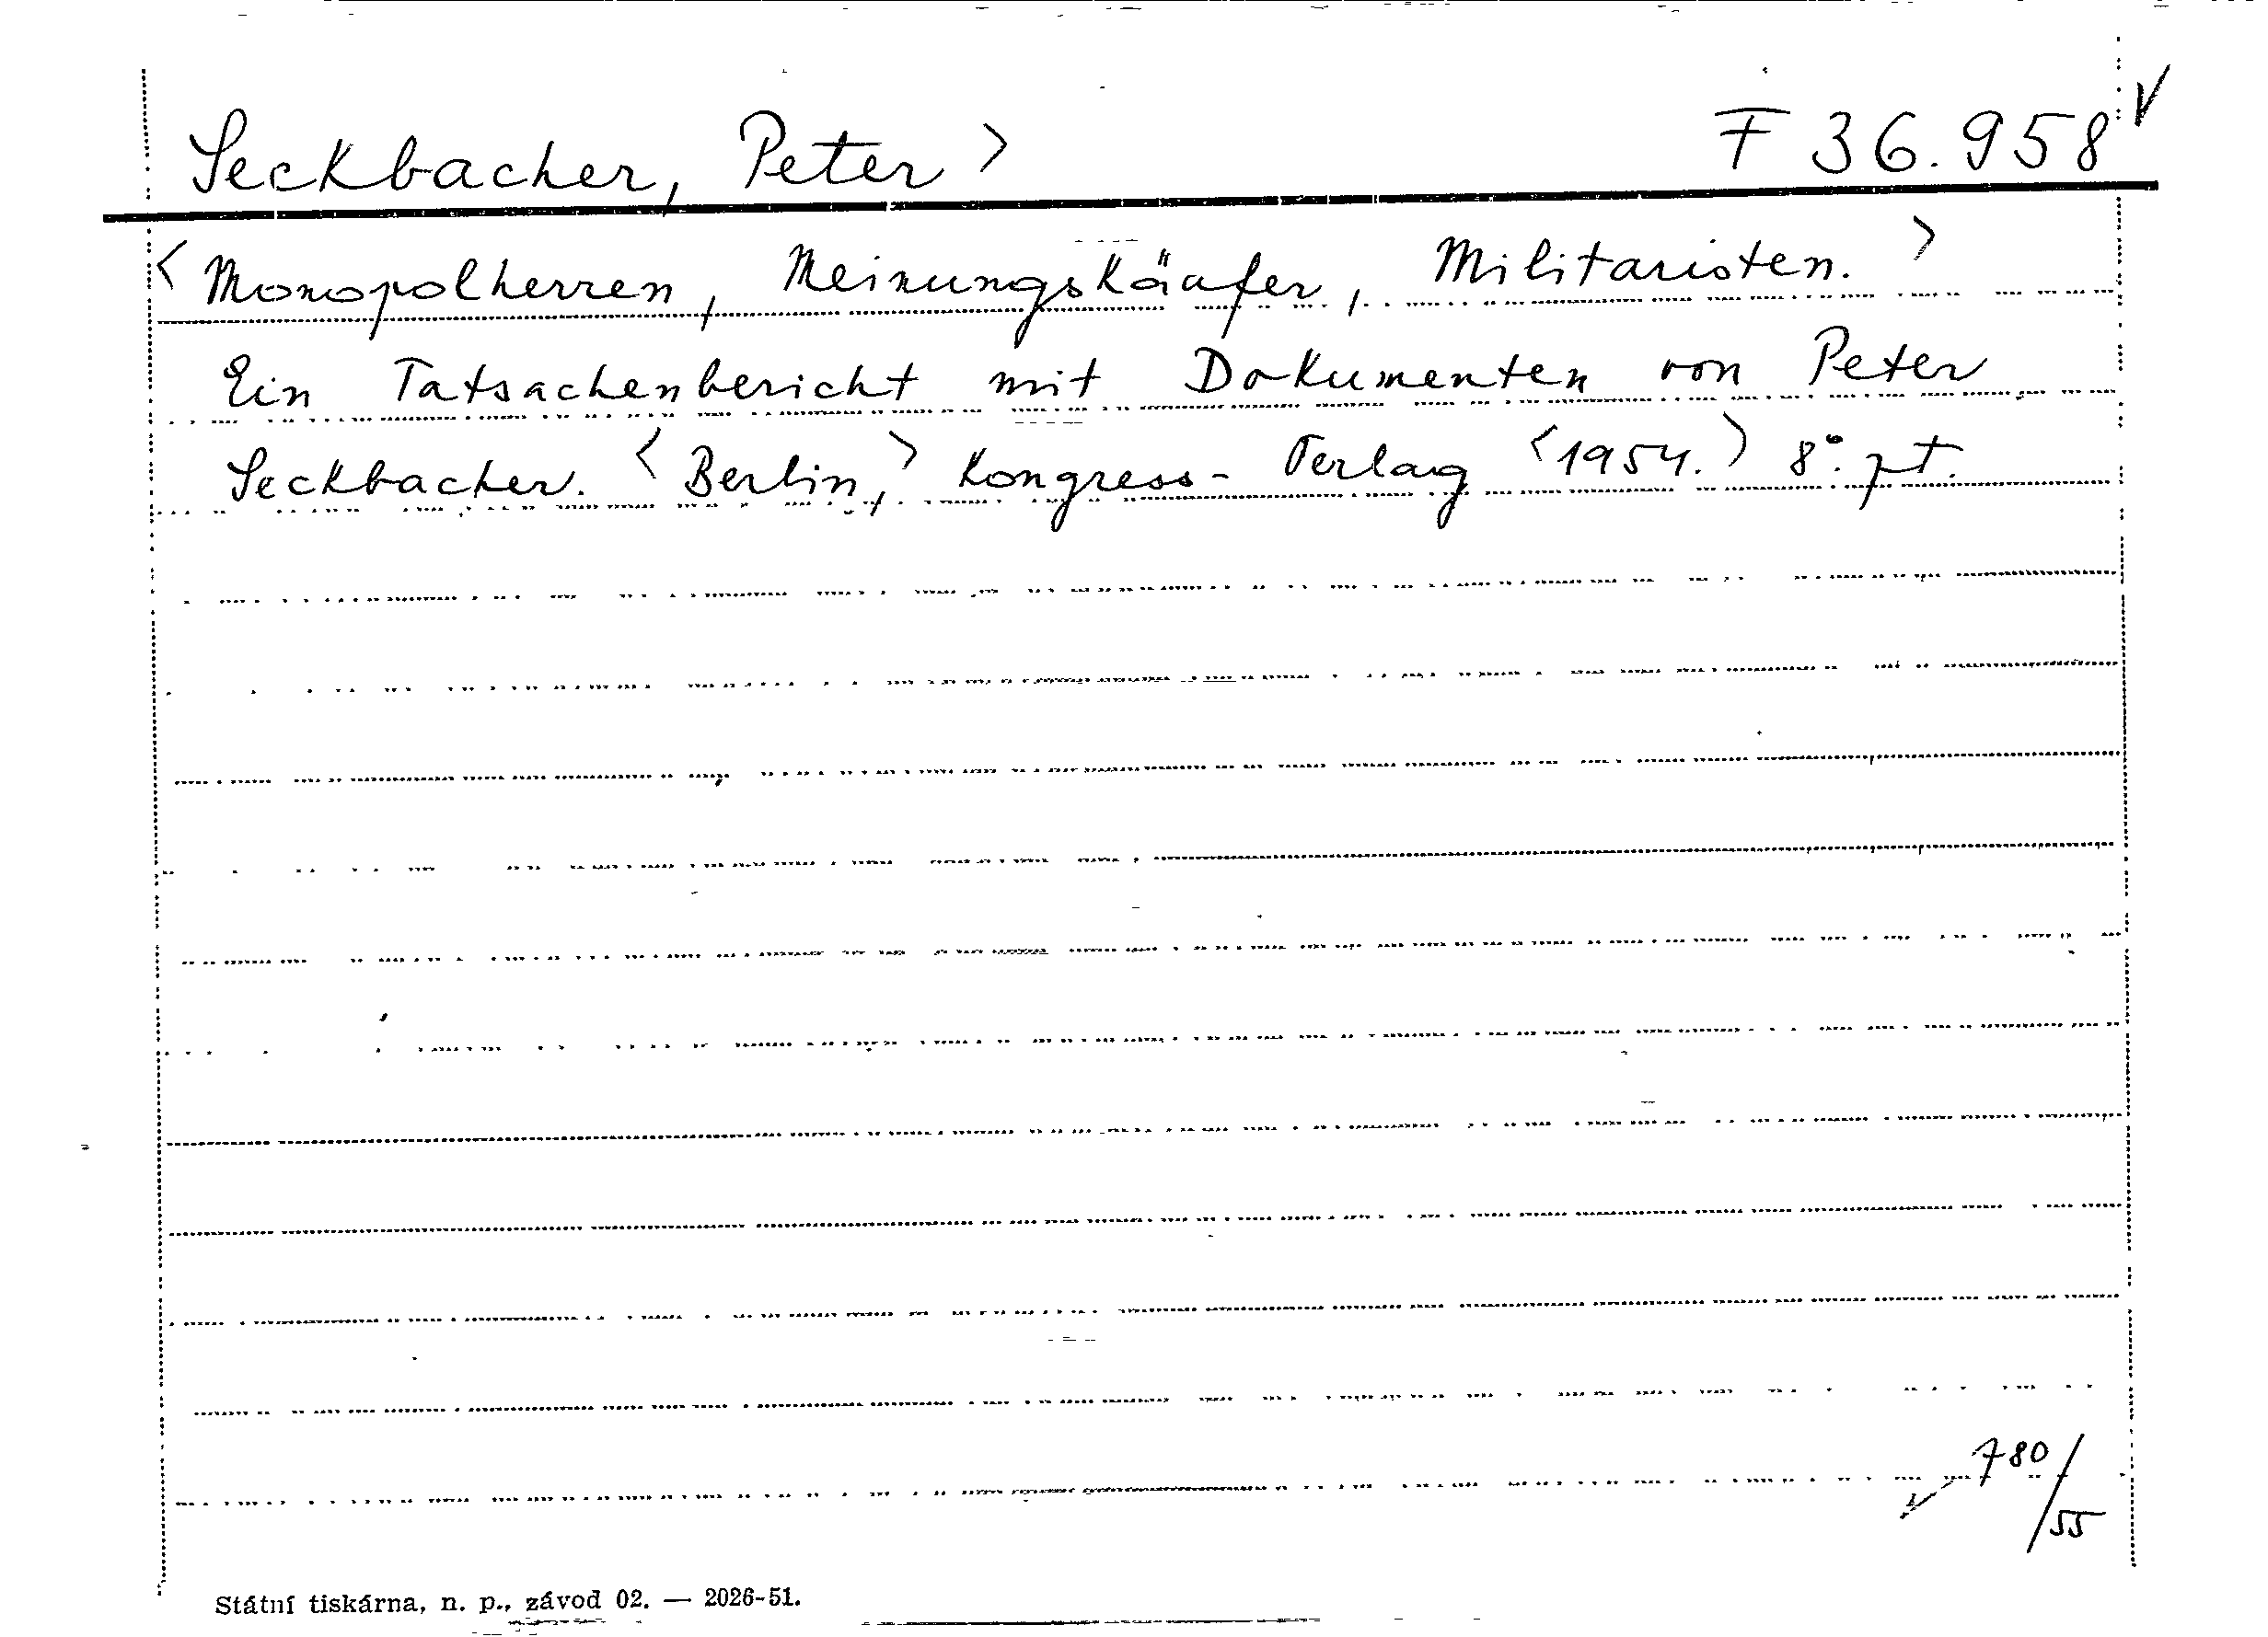 Seckbacher, Peter > F 36.958
<Monopolherren, Meinungskäufer, Militaristen.>
Ein Tatsachenbericht mit Dokumenten von Peter
Seckbacher. <Berlin,> Kongress-Verlag <1954.> 8°. pt.
780/55
Státní tiskárna, n. p., závod 02. — 2026-51.